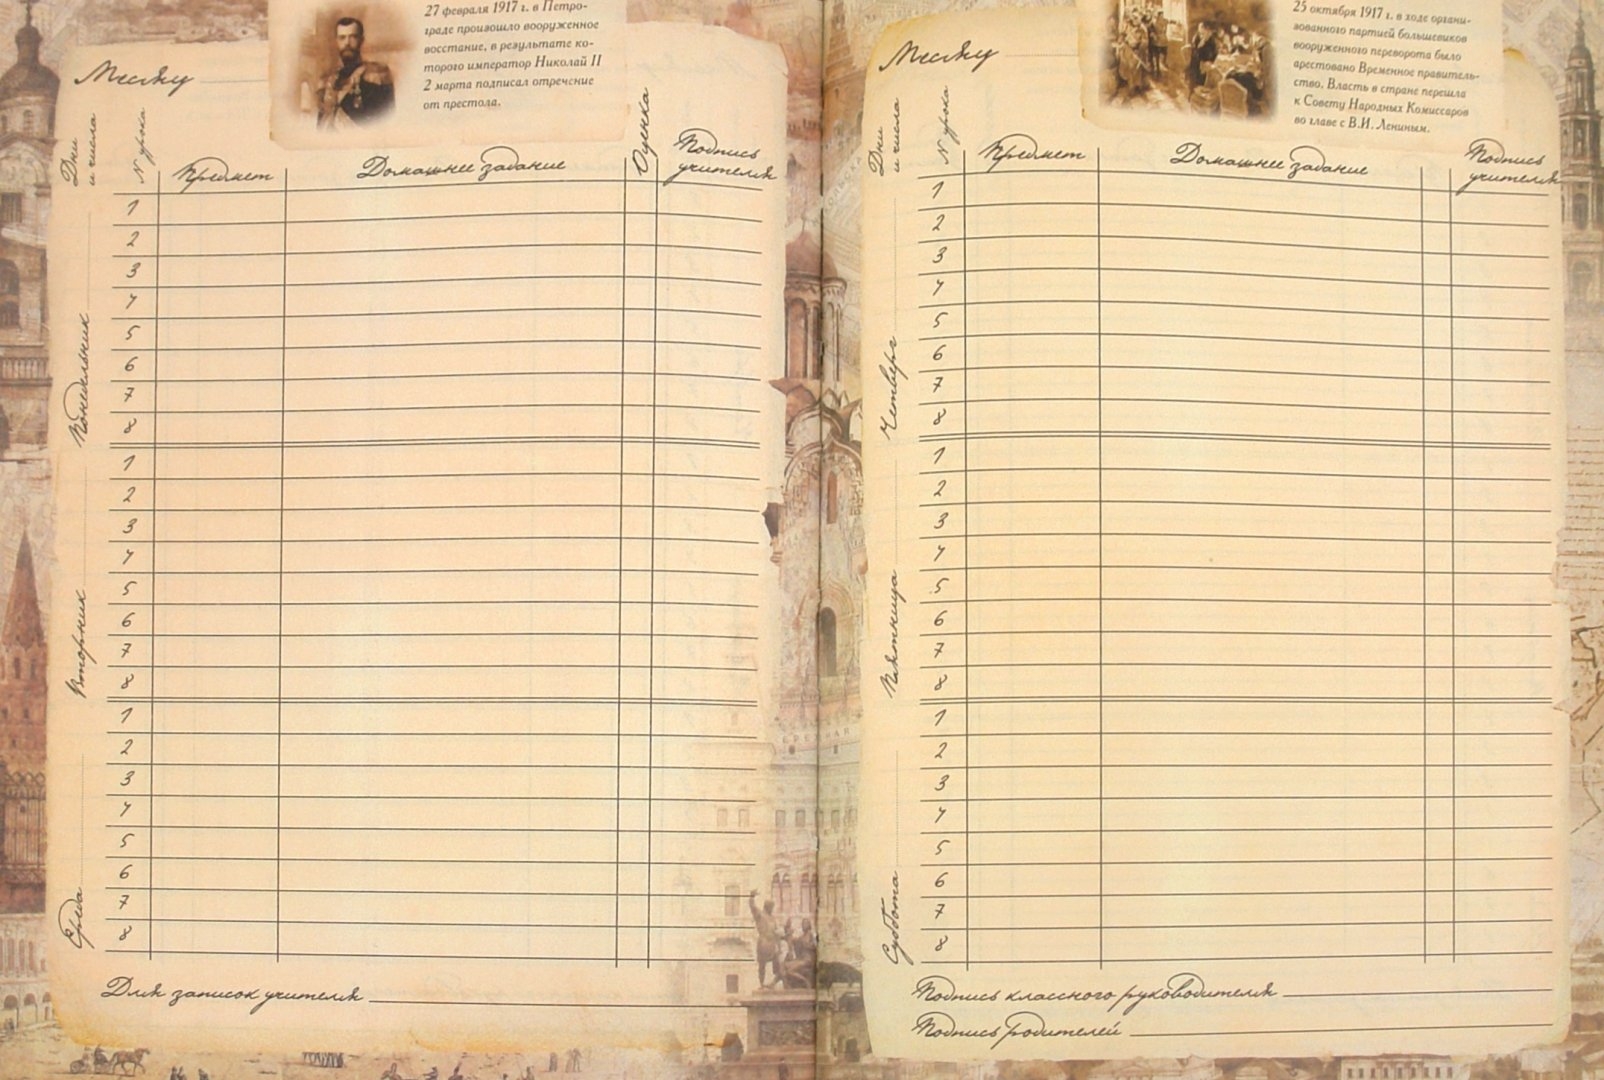 27 февраля 1917 г. в Петро-
граде произошло вооруженное
восстание, в результате ко-
торого император Николай II
2 марта подписал отречение
от престола.
Месяц
Дни
и числа
N урока
Предмет
Домашнее задание
Оценка
Подпись
учителя
Понедельник
1
2
3
4
5
6
7
8
Вторник
1
2
3
4
5
6
7
8
Среда
1
2
3
4
5
6
7
8
Для записок учителя
25 октября 1917 г. в ходе органи-
зованного партией большевиков
вооруженного переворота было
арестовано Временное правитель-
ство. Власть в стране перешла
к Совету Народных Комиссаров
во главе с В.И. Лениным.
Месяц
Дни
и числа
N урока
Предмет
Домашнее задание
Подпись
учителя
Четверг
1
2
3
4
5
6
7
8
Пятница
1
2
3
4
5
6
7
8
Суббота
1
2
3
4
5
6
7
8
Подпись классного руководителя
Подпись родителей